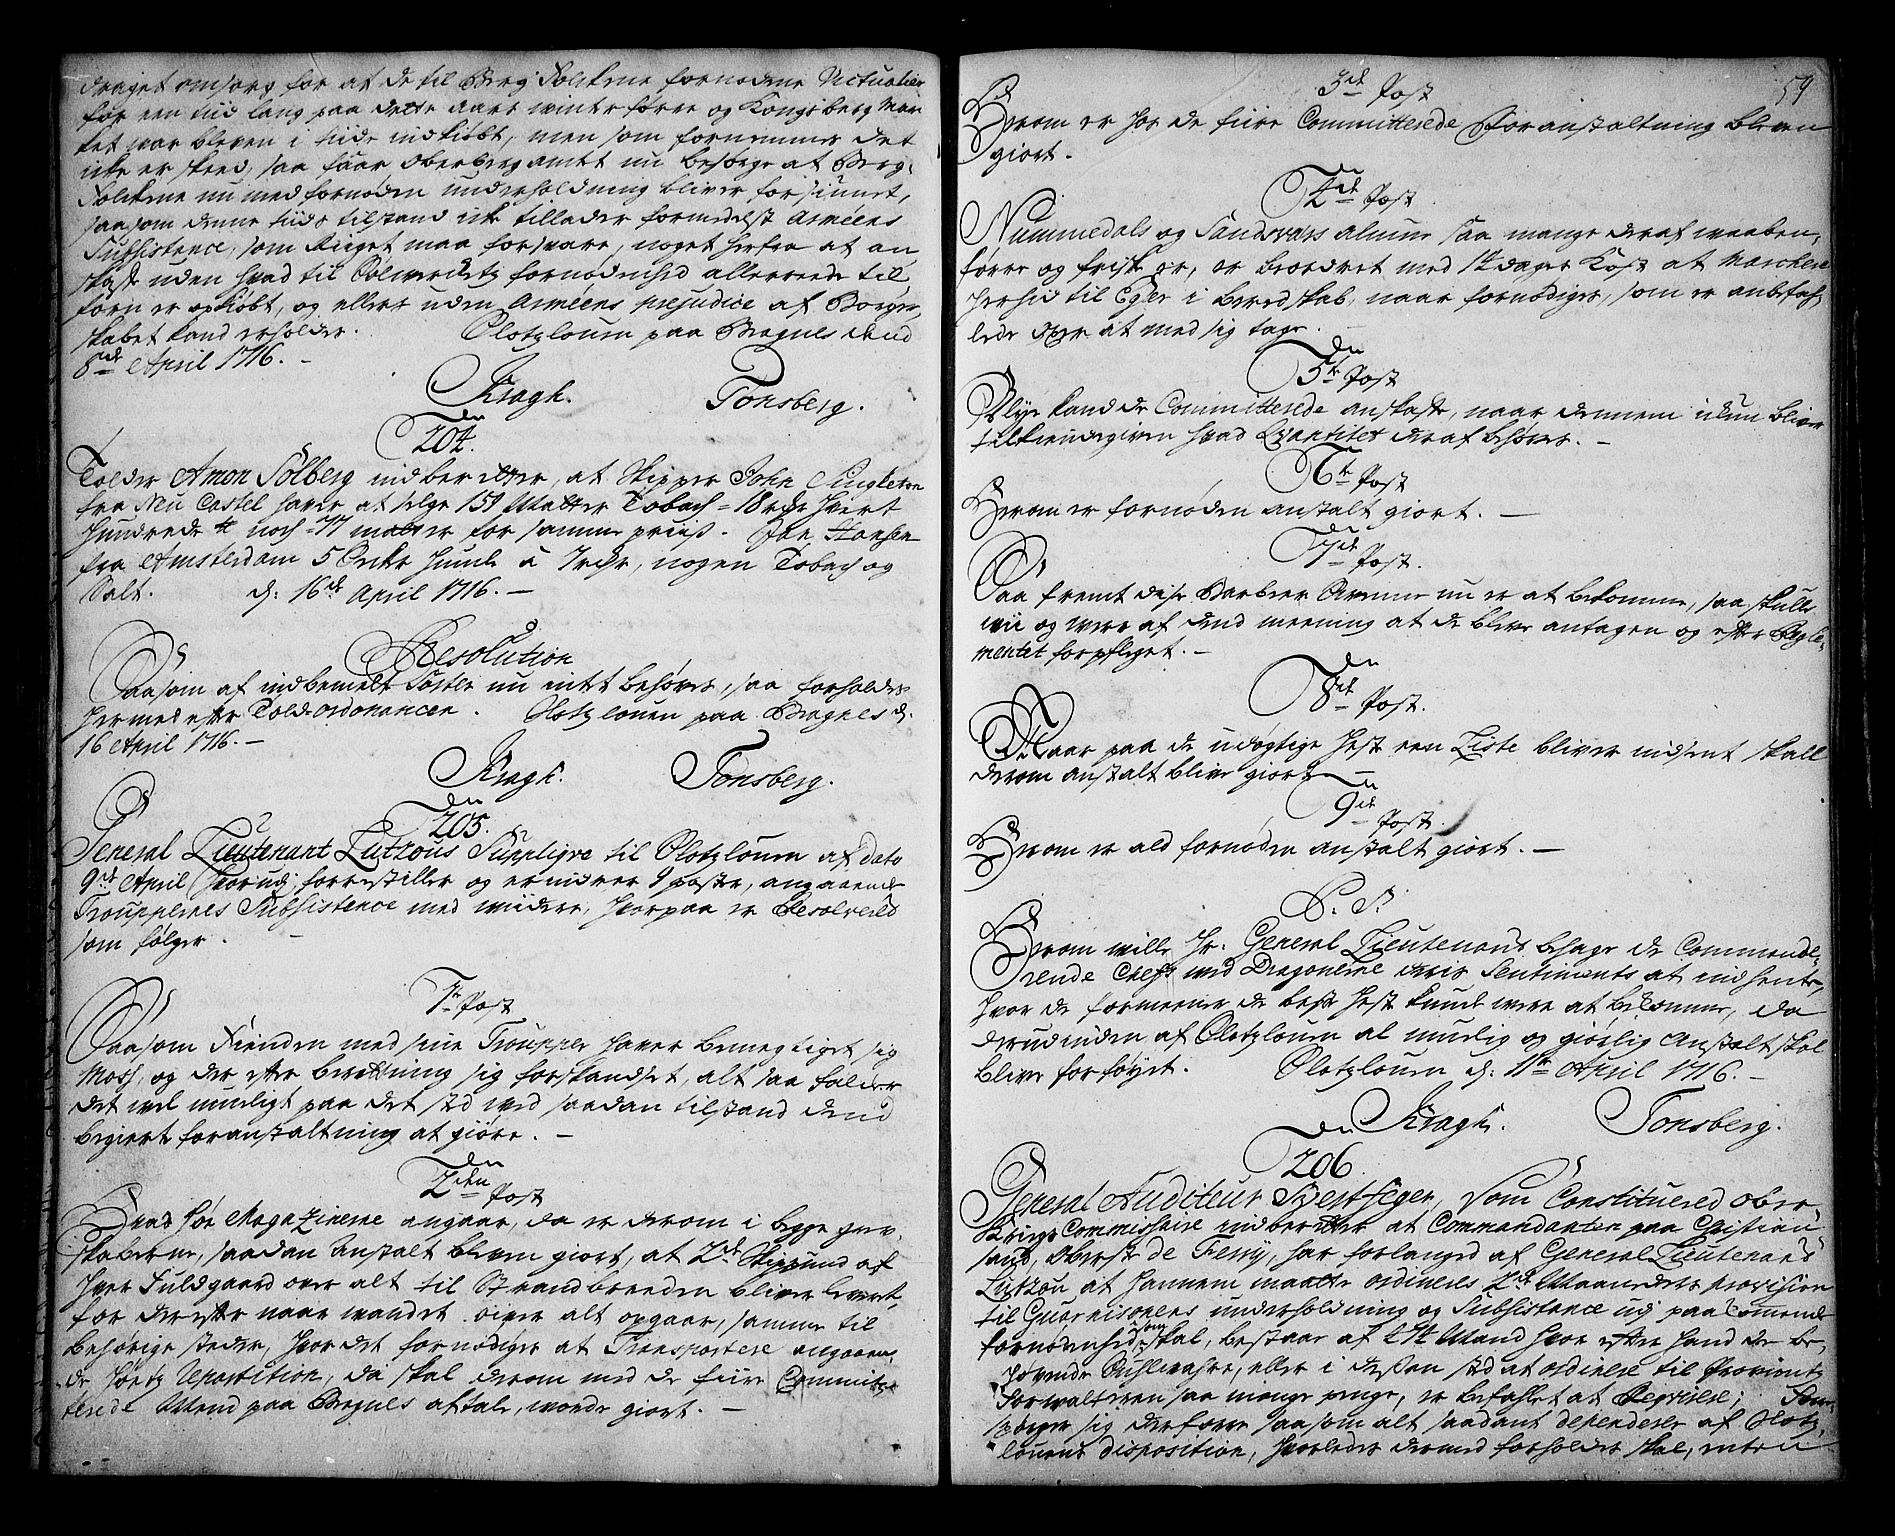 draget omsorg for at de til Berg Folkene fornødene Victualier
for een tiid lang paa dette aars winterføre og Kongsberg Mar
ket war bleven i tide indkiøbt, men som fornemmes det
icke er skeed, saa faar Oberbergamtet nu besørge at Berg-
Folkene nu med fornøden underholdning bliver forsiunet,
saasom denne tiids tilstand icke tillader formedelst Arméens
Subsistence, som Riiget maa forsvare, noget herfra at an
skaffe uden hvad til Sølvverketz fornødenhed allereede til
forn er opkiøbt, og ellers uden Arméens prejudice af Borger
skabet kand erholdes. Slotzlouen paa Bragnes dend
8de April 1716. –
Kragh. Tonsberg.
den
204.
Tolder Amon Solberg indberetter, at Skipper John Singleton
fra Neu Castel haver at selge 159 Matter Tobach = 18 rdr hvert
Hundrede lb noch 77 matter for samme priis. Jan Hansen
fra Amsterdam 5 Secke Humle a 7 rdr, nogen Tobach og
Salt. d: 16de April 1716. –
Resolution
Saasom af indbemelte Poster nu intet behøves, saa forholdes
hermed efter Toldordonancen. Slotzlouen paa Bragnes d:
16 April 1716. –
Kragh. Tonsberg.
den
205.
General Lieutenant Lutzous Suppliqve til Slotzlouen af dato
9de April hvorudj forrestiller og erindrer 9 poster, angaaende
Trouppernes Subsistence med widere, hvorpaa er Resolverit
som følger. –
1te Post
Saasom Fienden med sine Troupper haver bemegtiget sig
Moss, og der efter beretning sig forskandset, alt saa falder
det vel umueligt paa det sted ved saadan tilstand dend
begierte foranstaltning at giøre. –
den
2den Post
Hvad høe Magazinerne angaar, da er derom i begge grev
skaberne, saadan Anstalt bleven giort, at 2de Skippund af
hver Fuldgaard over alt til Strandbredden bliver levert,
for der efter naar wandet over alt opgaar, samme til
behørige steder, hvor det fornødiges at Transportere angaaen-
de høets Reposition, da skal derom med de fiire Commit-
terede Mænd paa Bragnes aftale, worde giort. –
59
3de Post
Herom er hos de fiire Committerede Foranstaltning bleven
giort.
den
4de Post.
Nummedals og Sandsvers almue saa mange deraf waaben,
føre og friske er, er beordret med 14 dages Kost at Marchere
herhid til Eger i beredskab, naar fornødiges, som er anbefah
lede Oxer at med sig tage. –
den
5te Post
Blye kand de Committerede anskaffe, naar dennem ickun bliver
tilkiendegiven hvad Qvantitet deraf behøves. –
6te Post
Herom er fornøden anstalt giort. –
den
7de Post.
Saa fremt disse Barbeer Svenne nu er at bekomme, saa skulle
wii og were af dend meening at de blive antagen og efter Regle-
mentet forpfleget. –
den
8de Post.
Naar paa de udøgtige Hest een Liste bliver indsent skall
derom anstalt blive giort –
9de
Post.
Herom er ald fornøden anstalt giort. –
P. S.
Herom wille Hr: General Lieutenant behage de Commande-
rende Chefs ved Dragonerne deris Sentiments at indhente,
hvor de formeener de beste Hest kunde were at bekomme, da
derudinden af Slotzlouen al muelig og giørlig Anstalt skal
blive forføyet. Slotzlouen d: 11te April 1716. –
Kragh. Tonsberg.
den
206.
General Auditeur Bestseger, som Constituered Ober
Krigs Commissaire indberetter at Commandanten paa Christian
sand, Oberste de Ferry, har forlanged af General Lieutenant
Lutzou at hannem maatte ordineres 2de Maaneders provision
til Guarnisonens underholdning og Subsistence udj paakommende
fornødenhed, som skal bestaar af Mand hvor efter hand de be-
høvende wahre, eller i dessen sted at ordinere til Proviant
Forwalteren saa mange penge, er befahlet at Reqvirere; Som
spørger sig derfore saasom alt saadant dependerer af Slotz
louens disposition, hvorledes dermed forholdes skal, enten